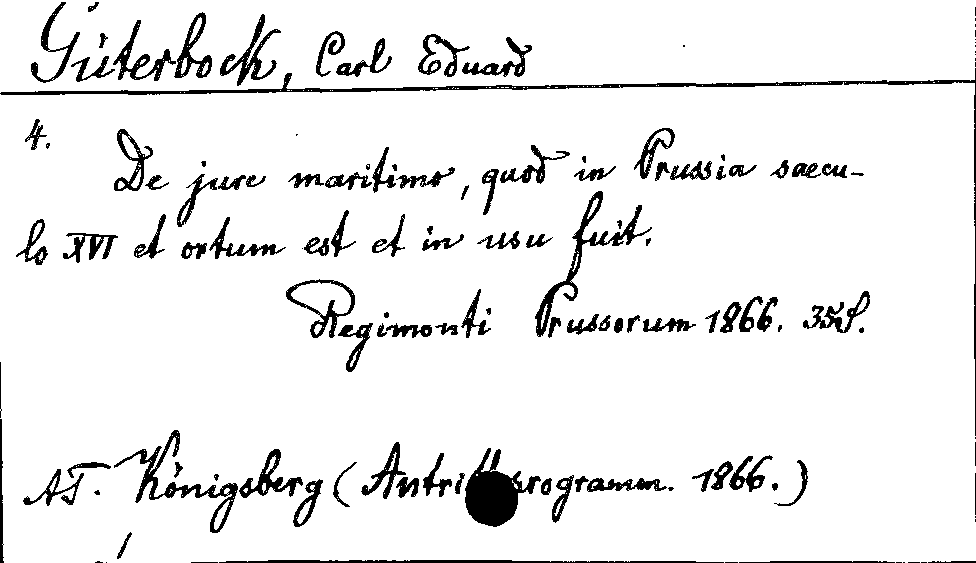 Güterbock, Carl Eduard
4.
De jure maritimo, quod in Prussia saecu-
lo XVI et ortum est et in usu fuit.
Regimonti Prussorum 1866. 35 S.
AT. Königsberg (Antrittsprogramm. 1866.)